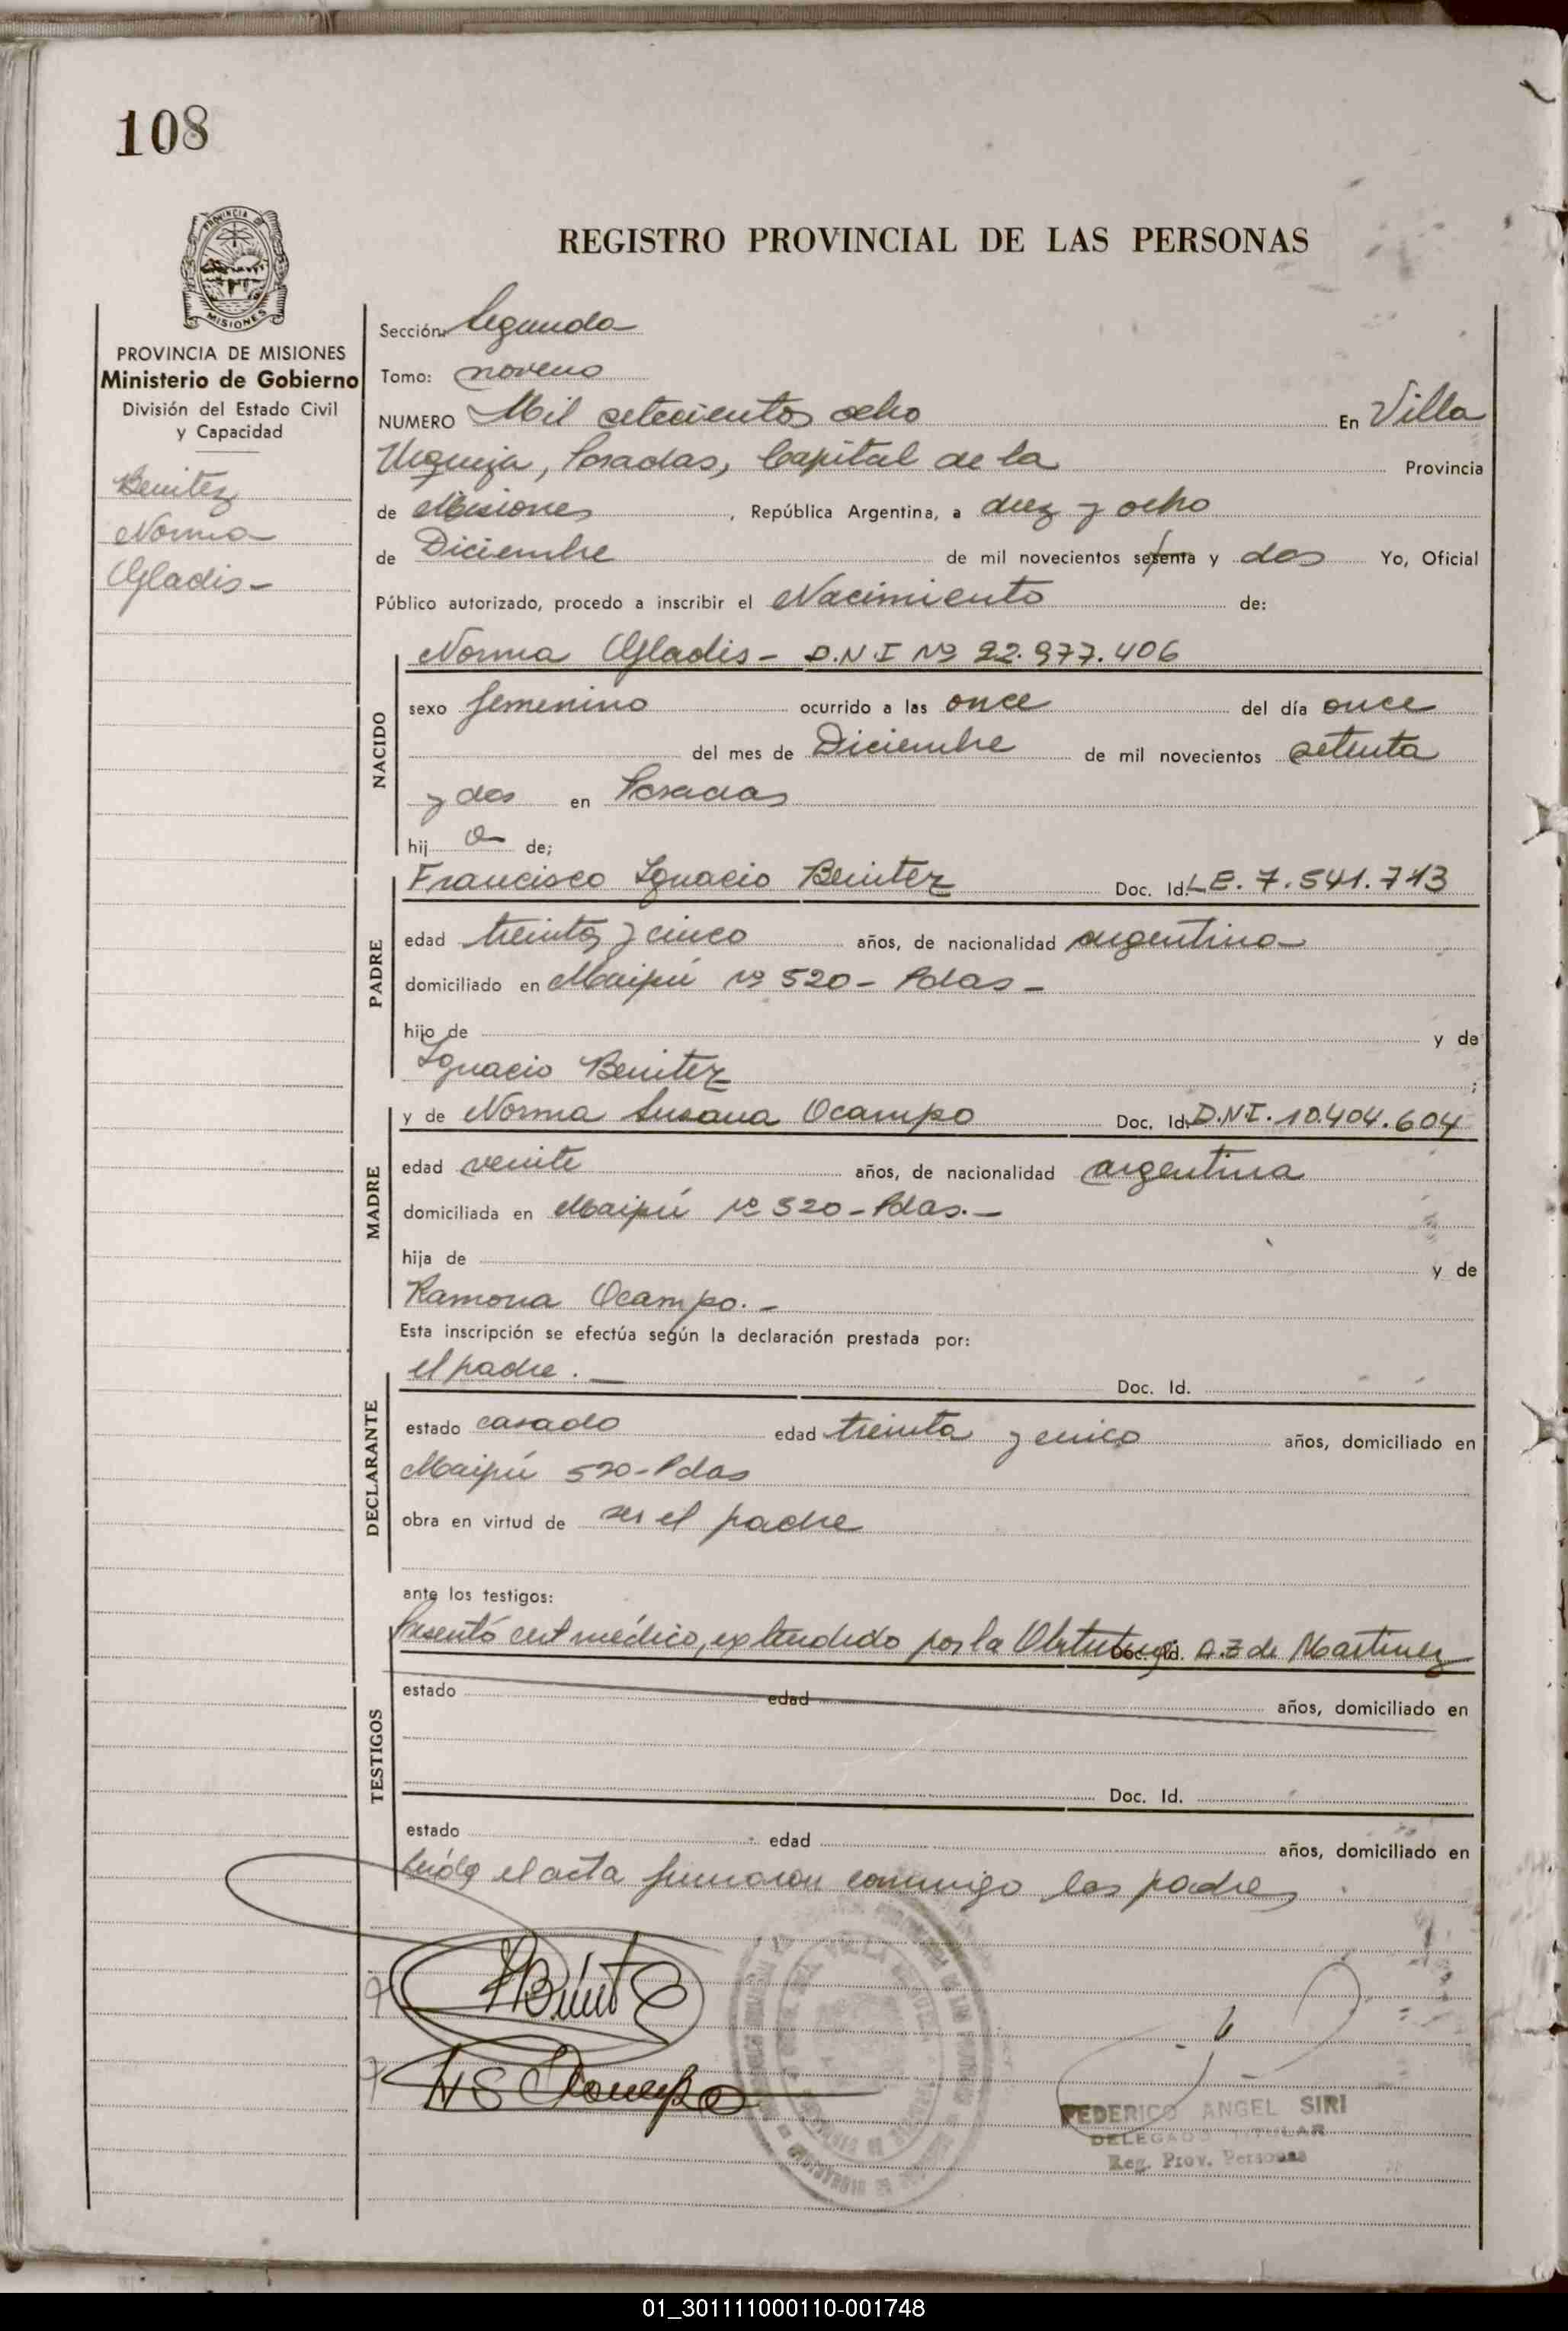 108
PROVINCIA DE
MISIONES
REGISTRO PROVINCIAL DE LAS PERSONAS
PROVINCIA DE MISIONES
Ministerio de Gobierno
División del Estado Civil
y Capacidad
Benitez
Norma
Gladis-
Sección: Segunda
Tomo: noveno
NUMERO Mil setecientos ocho En Villa
Urquiza, Posadas, Capital de la Provincia
de Misiones, República Argentina, a diez y ocho
de Diciembre de mil novecientos setenta y dos Yo, Oficial
Público autorizado, procedo a inscribir el Nacimiento de:
NACIDO
Norma Gladis- D.N.I Nº 22.977.406
sexo femenino ocurrido a las once del día once
del mes de Diciembre de mil novecientos setenta
y dos en Posadas
hij a de;
PADRE
Francisco Ignacio Benitez Doc. Id. L E. 7.541.713
edad treinta y cinco años, de nacionalidad argentino-
domiciliado en Maipú Nº 520- Pdas-
hijo de y de
Ignacio Benitez ;
MADRE
y de Norma Susana Ocampo Doc. Id. D.N.I. 10.404.604
edad veinte años, de nacionalidad argentina
domiciliada en Maipú Nº 520-Pdas.-
hija de y de
Ramona Ocampo.-
Esta inscripción se efectúa según la declaración prestada por:
DECLARANTE
el padre.- Doc. Id.
estado casado edad treinta y cinco años, domiciliado en
Maipú 520-Pdas
obra en virtud de ser el padre
ante los testigos:
TESTIGOS
Presentó cert médico, extendido por la Obstetriz Doc. Id. A.Z de Martinez
estado edad años, domiciliado en
Doc. Id.
estado edad años, domiciliado en
Leída el acta firmaron conmigo los padres
Benitez
NS Ocampo
VILLA
FEDERICO ANGEL SIRI
DELEGADO TITULAR
Reg. Prov. Personas
01_301111000110-001748